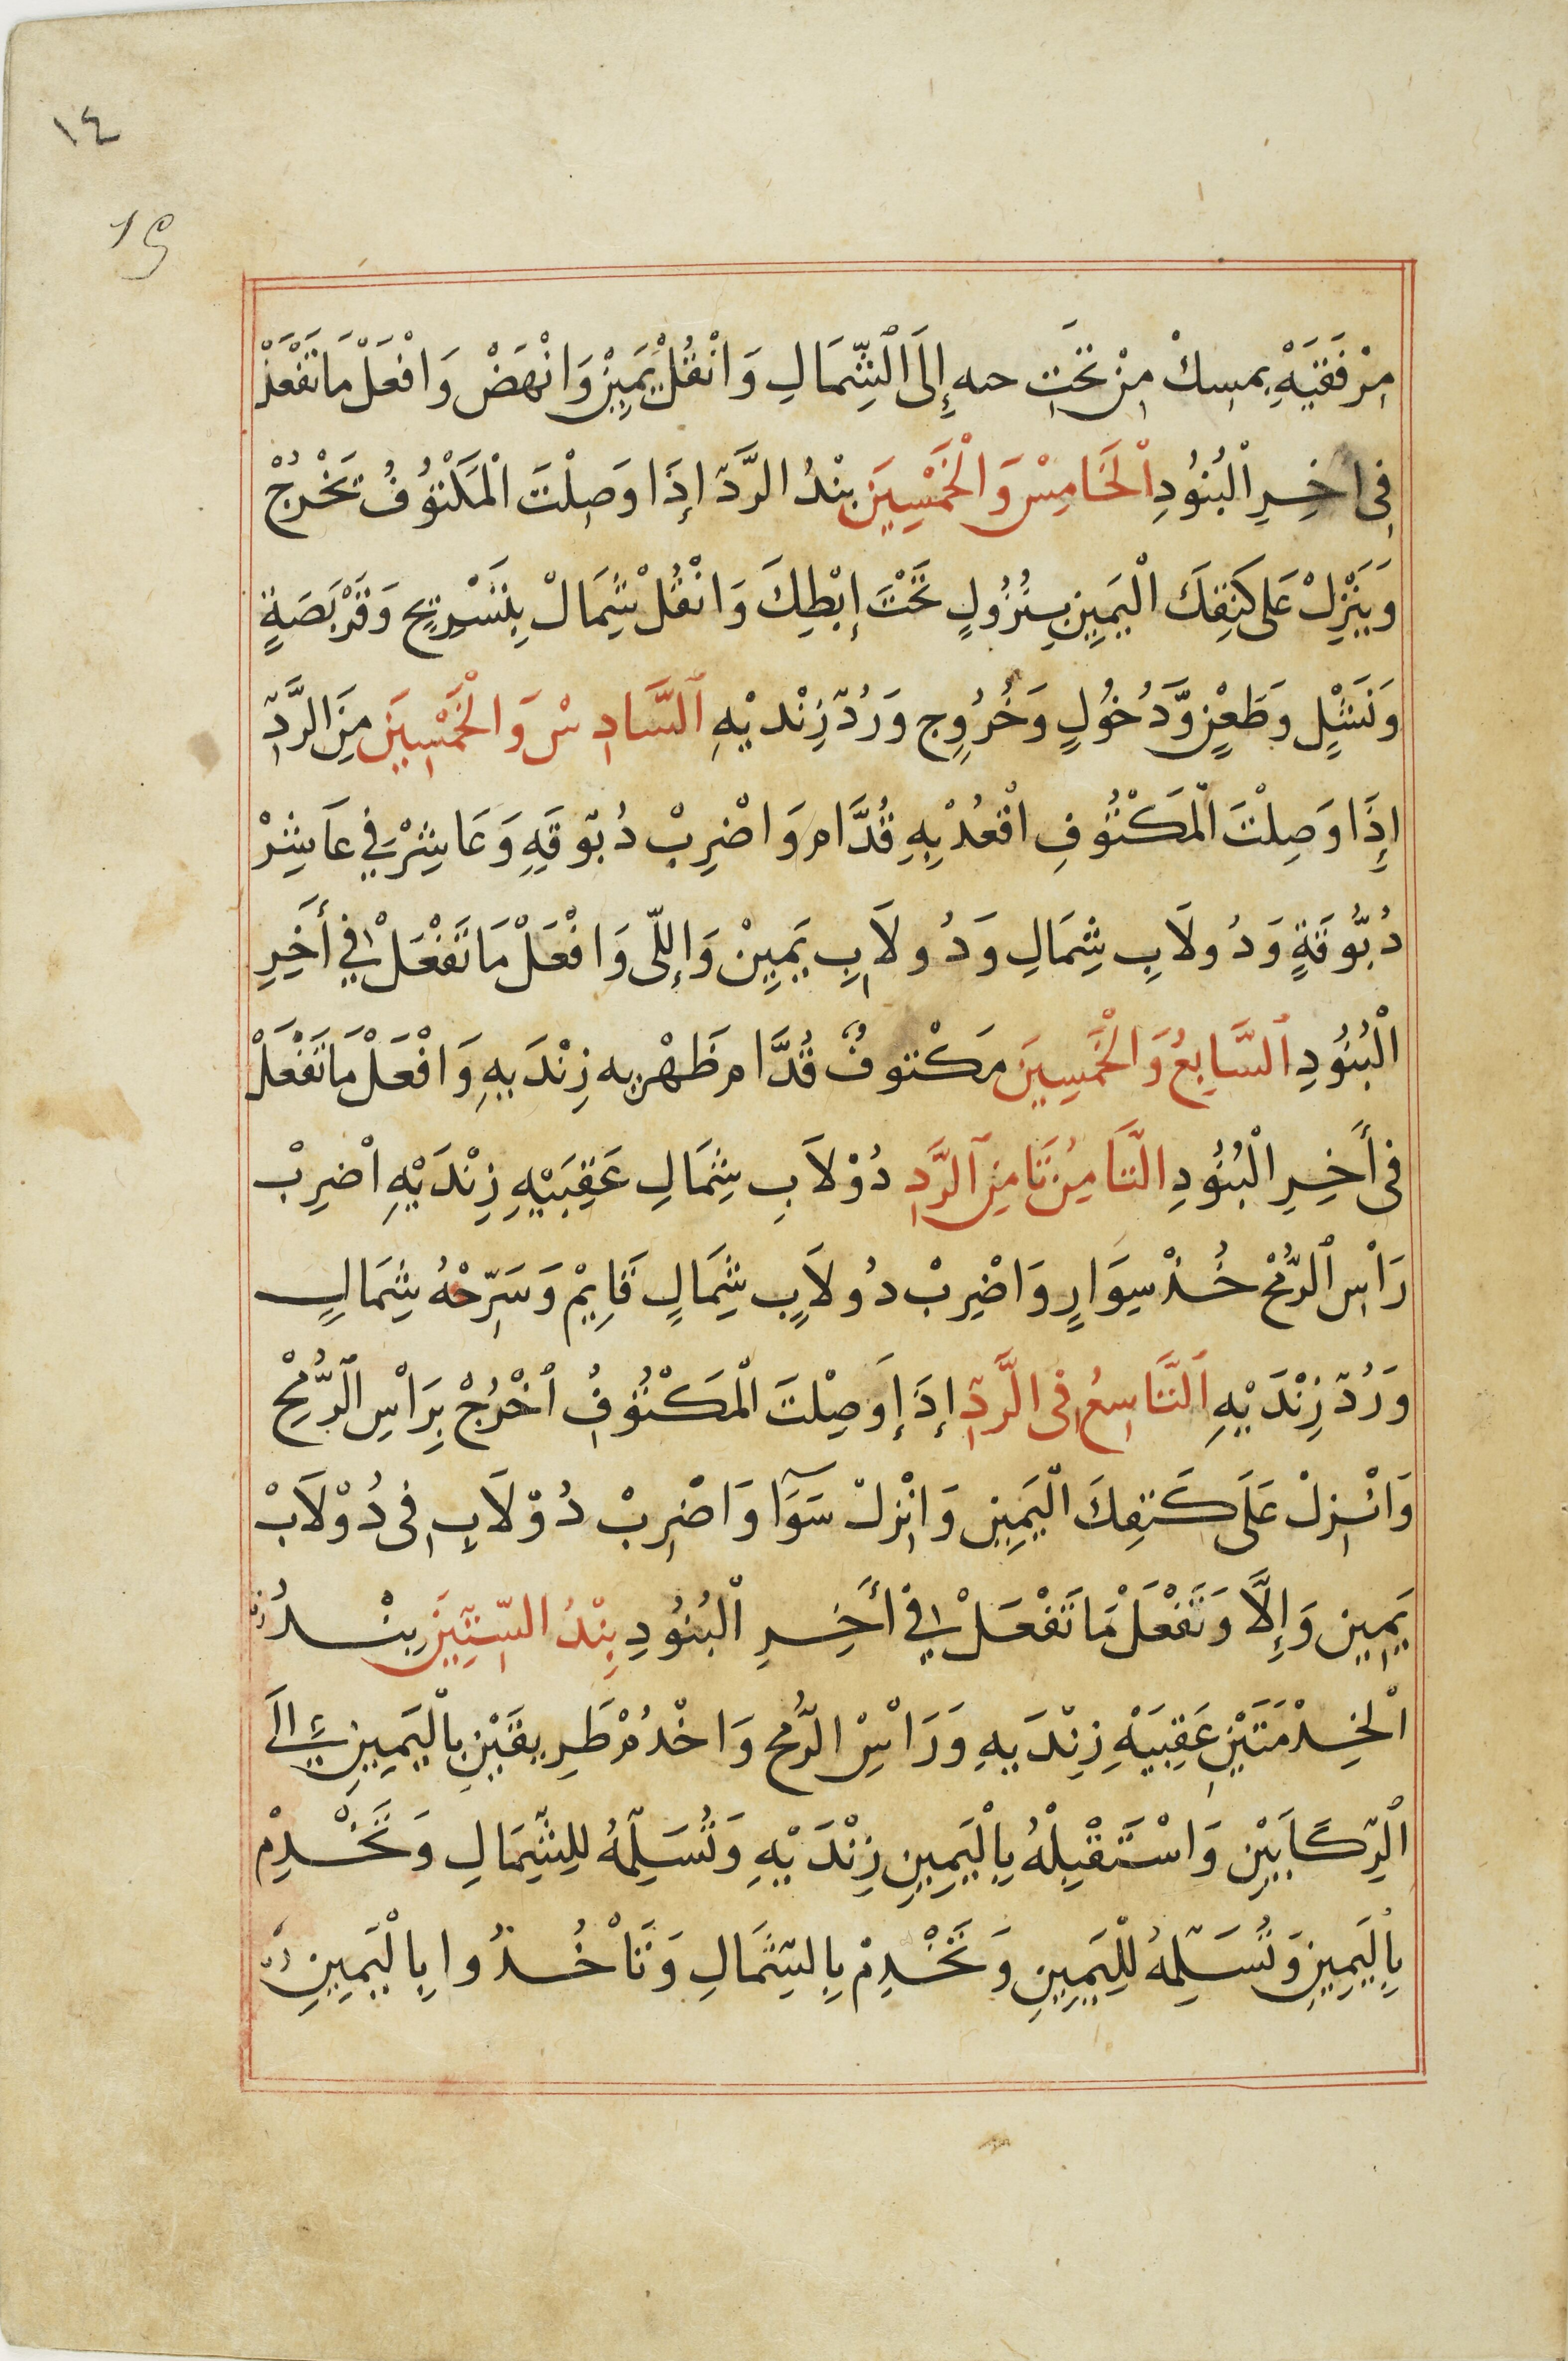 ١٤
19
مِرْفَقَيْهِ بِمسِكْ مِنْ تَحَتِ حىه إِلَى ٱلشِّمَالِ وَانْقُلْ يَمَيِنْ وَانْهَضْ وَافْعَلْ مَا تَفْعَلْ
فِى اخِرِ الْبُنُودِ الْخَامِسْ وَالْخَمْسِيَن بنْدُ الرَّدّ إِذَا وَصِلْتَ الْمَكْتوُفُ تَخْرُجْ
وَيَنْزِلْ عَلى كَتِفِكَ الْيَمِيِن بِنُزُولٍ تَحْتَ إِبْطِكَ وَانْقُلْ شِمَالْ بِتَسْرِيحٍ وَقَرْبَصَةٍ
وَنَشْلٍ وَطَعْنٍ وَّدَخُولٍ وَخُرُوِج وَرُدّ زِنْديْهِ اَلسَّادِسْ وَالْخَمْسِيَن مِنَ الرَّدِّ
إِذَا وَصِلْتَ الْمَكْتُوفِ اقْعُدْ بِهِ قُدَّام وَاضْرِبْ دُبّوقَهِ وَعَاشِرْ فِي عَاشِرْ
دُبُّوقَةٍ وَدُولَابِ شِمَالِ وَدُولَابِ يَمِيِنْ وَإِللّى وَافْعَلْ مَا تَفْعَلْ فِي أَخِرِ
الْبُنُودِ اَلسَّابِعُ وَالْخَمسِينَ مَكْتوفٌ قُدَّام ظَهْر به زِنْدَيهِ وَافْعَلْ مَا تَفْعَلْ
فى أَخِرِ الْبُنُودِ الثَّامِنُ ثَا مِنَ اَلرَّدِ دُوْلَابِ شِمَالِ عَقِبَيْهِ زِنْدَيْهِ اضْرِبْ
رَاْسِ الرُّمْحْ خُذْ سِوَارٍ وَاضْرِبْ دُولَابٍ شِمَالٍ قَايِمْ وَسَرِّحْهُ شِمَالٍ
وَرُدّ زِنْدَيْهِ اَلتَّاسِعُ فِى الرَّدِّ إِذَا إِوَصِلْتَ الْمَكْتُوفُ اخْرُجْ بِرَاْسِ الرُّمْحِ
وَانْزِلْ عَلَى كَتِفِكَ الْيَمِيِن وَانْزِلْ سَوَآ وَاضْرِبْ دُوْلَابِ فِى دُوْلَابْ
يَمِيِن وَإِلَّا وَتَفْعَلْ مَا تَفْعَلْ فِي أَخِرِ الْبُنُودِ بِنْدُ السِّتِيَن بِنْدُ
الْخِدْمَتَيْنِ عَقِبَيْهْ زِنْدَيهِ وَرَاسْ الرُّمح وَاخْدُمْ طَرِيقَيْنِ بِالْيَمِينِ إِلَى
الْرِّكَابَيْن وَاسْتَقْبِلْهُ بِالْيَمِينِ زِنْدَيْهِ وَتُسَلِّمْهُ لِلشِّمَالِ وَتَخْدِمْ
بِالْيَمِينِ وَتُسَلِّمهُ لِلْيَمِينِ وَتَخْدِمْ بِالشِّمَالِ وَتَاْخُذُوا بِالْيَمِينِ